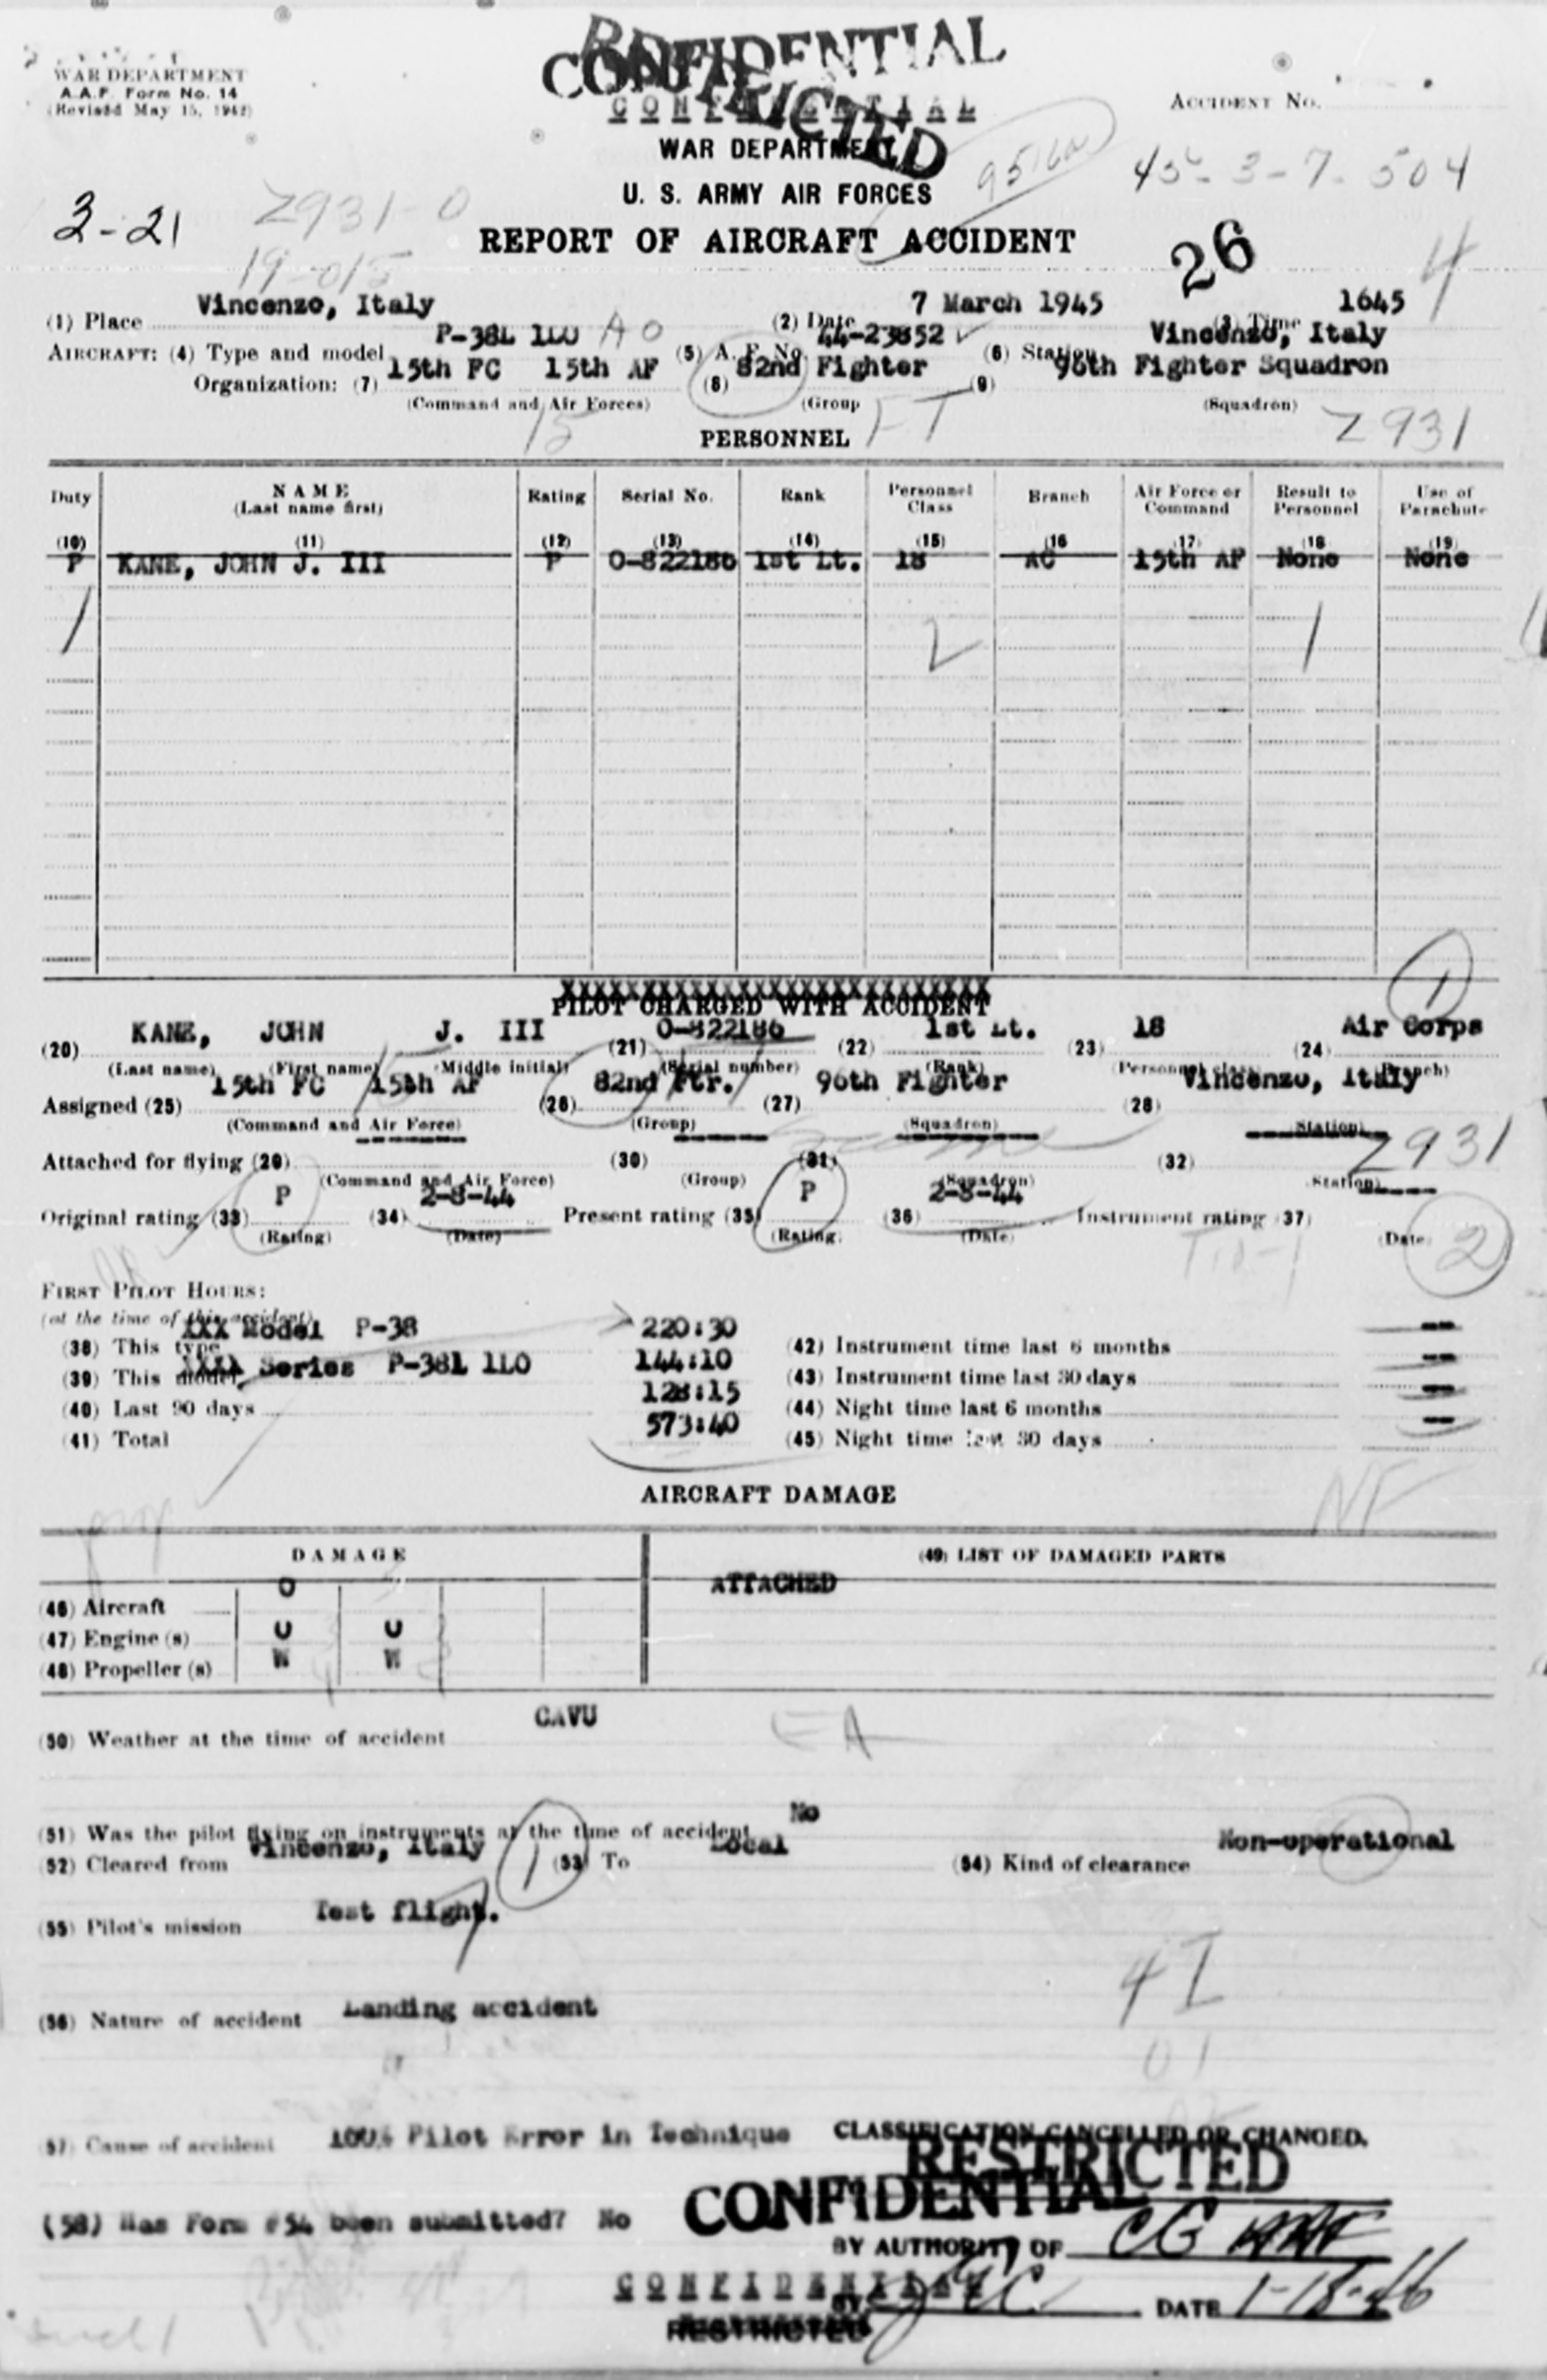 WAR DEPARTMENT
A.A.F. Form No. 14
(Revised May 15, 1942)
CONFIDENTIAL
RESTRICTED
CONFIDENTIAL
ACCIDENT No.
WAR DEPARTMENT
45-3-7-504
U. S. ARMY AIR FORCES
3-21
Z931-0
REPORT OF AIRCRAFT ACCIDENT
26
4
(1) Place Vincenzo, Italy (2) Date 7 March 1945 (3) Time 1645
AIRCRAFT: (4) Type and model P-38L 1LO AO (5) A. F. No. 44-23852 (6) Station Vincenzo, Italy
Organization: (7) 15th FC 15th AF (8) 82nd Fighter (9) 96th Fighter Squadron
(Command and Air Forces) (Group (Squadron)
15 FT Z931
PERSONNEL
Duty NAME (Last name first) Rating Serial No. Rank Personnel Class Branch Air Force or Command Result to Personnel Use of Parachute
(10) (11) (12) (13) (14) (15) (16 (17) (18 (19)
P KANE, JOHN J. III P O-822186 1st Lt. 18 AC 15th AF None None
1 2 1
1
XXXXXXXXXXXXXXXXXXXXXXXXXX
PILOT CHARGED WITH ACCIDENT
(20) KANE, JOHN J. III (21) O-822186 (22) 1st Lt. (23) 18 (24) Air Corps
(Last name) (First name) (Middle initial) (Serial number) (Rank) (Personnel class) (Branch)
Assigned (25) 15th FC 15th AF (26) 82nd Ftr. (27) 96th Fighter (28) Vincenzo, Italy
(Command and Air Force) (Group) (Squadron) (Station)
Attached for flying (29) (30) (31) (32) Z931
(Command and Air Force) (Group) (Squadron) Station)
Original rating (33) P (34) 2-8-44 Present rating (35) P (36) 2-8-44 Instrument rating (37)
(Rating) (Date) (Rating) (Date) (Date)
2
FIRST PILOT HOURS:
(at the time of this accident)
(38) This type XXX Model P-38 220:30 (42) Instrument time last 6 months --
(39) This model XXXX Series P-38L 1LO 144:10 (43) Instrument time last 30 days --
(40) Last 90 days 128:15 (44) Night time last 6 months --
(41) Total 573:40 (45) Night time last 30 days --
AIRCRAFT DAMAGE
NF
DAMAGE (49) LIST OF DAMAGED PARTS
(46) Aircraft O ATTACHED
(47) Engine (s) U U
(48) Propeller (s) W W
(50) Weather at the time of accident CAVU
(51) Was the pilot flying on instruments at the time of accident No
(52) Cleared from Vincenzo, Italy (53) To Local (54) Kind of clearance Non-operational
(55) Pilot's mission Test flight.
41
(56) Nature of accident Landing accident
01
57) Cause of accident 100% Pilot Error in Technique
CLASSIFICATION CANCELLED OR CHANGED.
RESTRICTED
CONFIDENTIAL
(58) Has Form #54 been submitted? No
BY AUTHORITY OF CG AAF
CONFIDENTIAL
BY JFC DATE 1-18-46
RESTRICTED